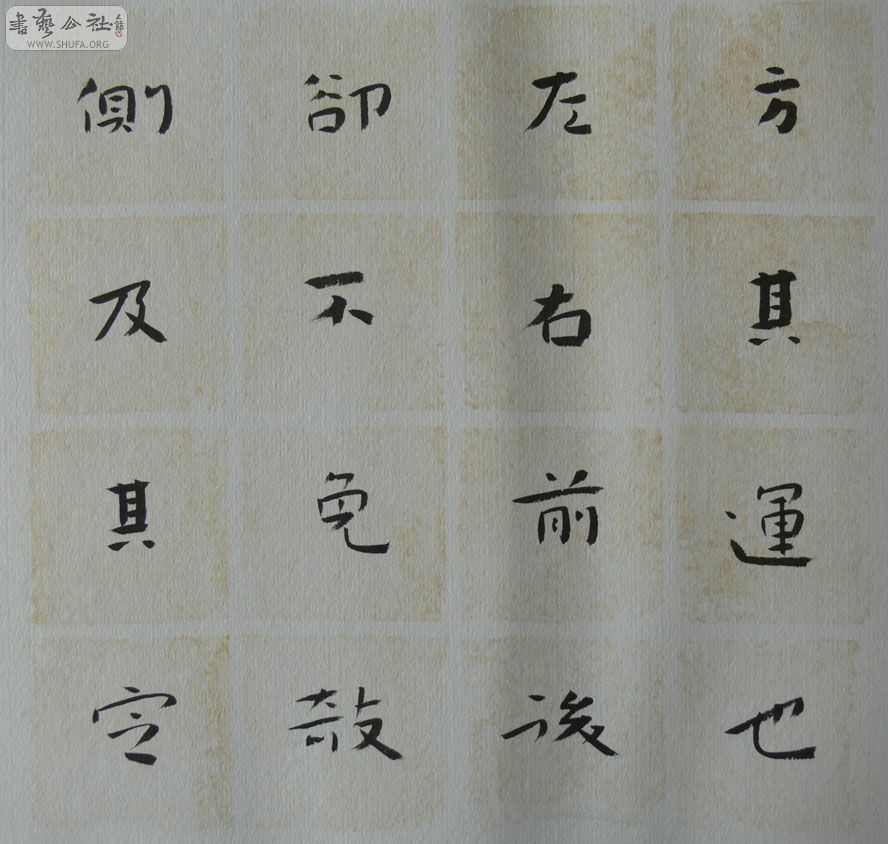 方其運也
左右前後
卻不免攲
側及其定
書藝公社
WWW.SHUFA.ORG